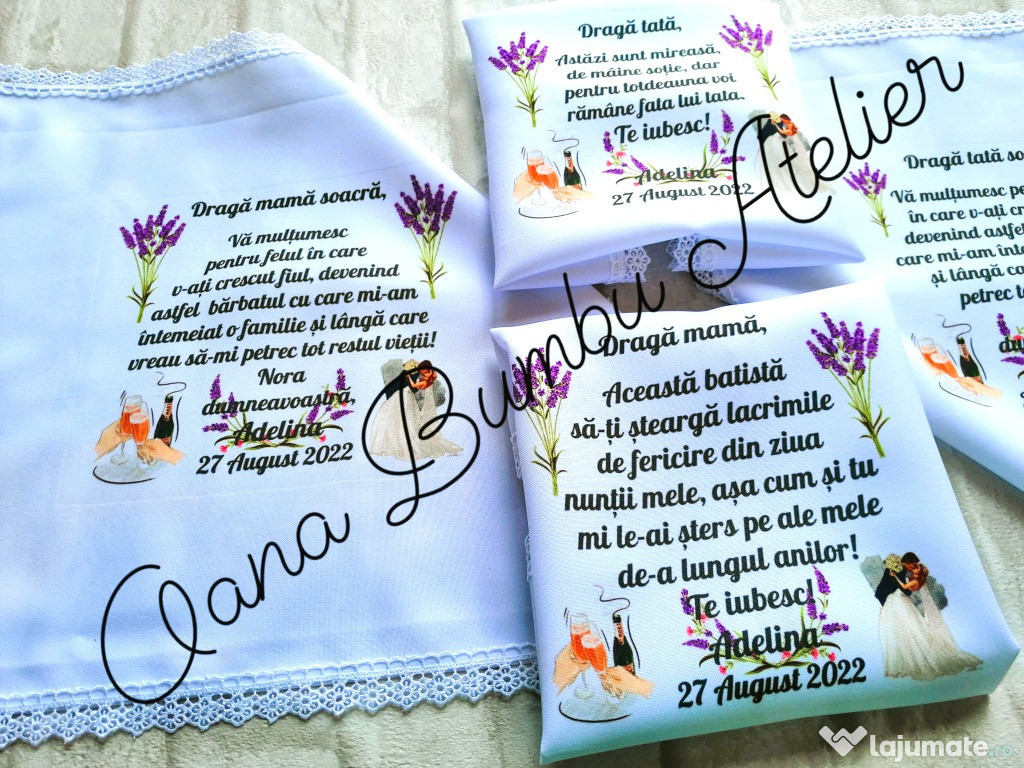 Dragă mamă soacră,
Vă mulțumesc
pentru felul în care
v-ați crescut fiul, devenind
astfel bărbatul cu care mi-am
întemeiat o familie și lângă care
vreau să-mi petrec tot restul vieții!
Nora
dumneavoastră,
Adelina
27 August 2022
Dragă tată,
Astăzi sunt mireasă,
de mâine soție, dar
pentru totdeauna voi
rămâne fata lui tata.
Te iubesc!
Adelina
27 August 2022
Dragă mamă,
Această batistă
să-ți șteargă lacrimile
de fericire din ziua
nunții mele, așa cum și tu
mi le-ai șters pe ale mele
de-a lungul anilor!
Te iubesc!
Adelina
27 August 2022
Dragă tată
Vă mulțumesc
în care v-ați
devenind
care mi-am
și lângă
petrec
Oana Bumbu Atelier
lajumate.ro